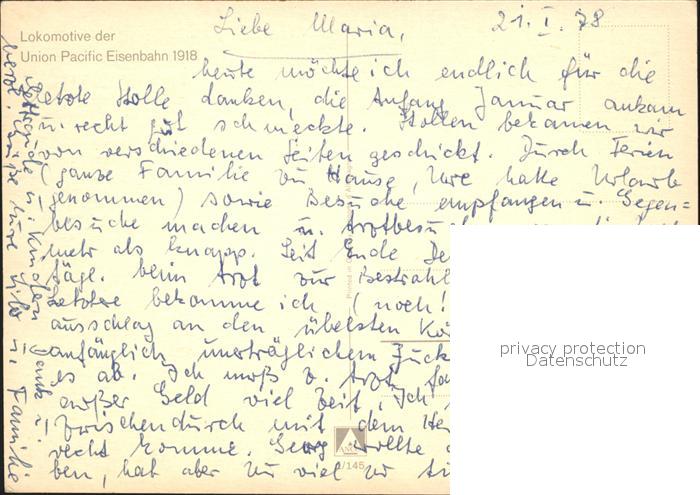 Lokomotive der
Union Pacific Eisenbahn 1918
Liebe Maria, 21. I. 78
heute möchte ich endlich für die
letzte Stolle danken, die Anfang Januar ankam
u. recht gut schmeckte. Stollen bekamen wir
von verschiedenen Seiten geschickt. Durch Ferien
(ganze Familie zu Hause, Uwe hatte Urlaub
genommen) sowie Besuche empfangen u. Gegen=
besuche machen u.
mehr als knapp. Seit Ende De
tägl. beim Arzt zur Bestrahl
Letztere bekomme ich (noch!
ausschlag an den übelsten Kö
anfänglich unerträglichem Juck
es ab. Ich muß z. Arzt
außer Geld viel Zeit, Ich
zwischendurch mit dem
recht komme. Georg wollte
ben, hat aber zu viel zu
privacy protection
Datenschutz
u. Kindern
Dank u.
u. Familie
/145